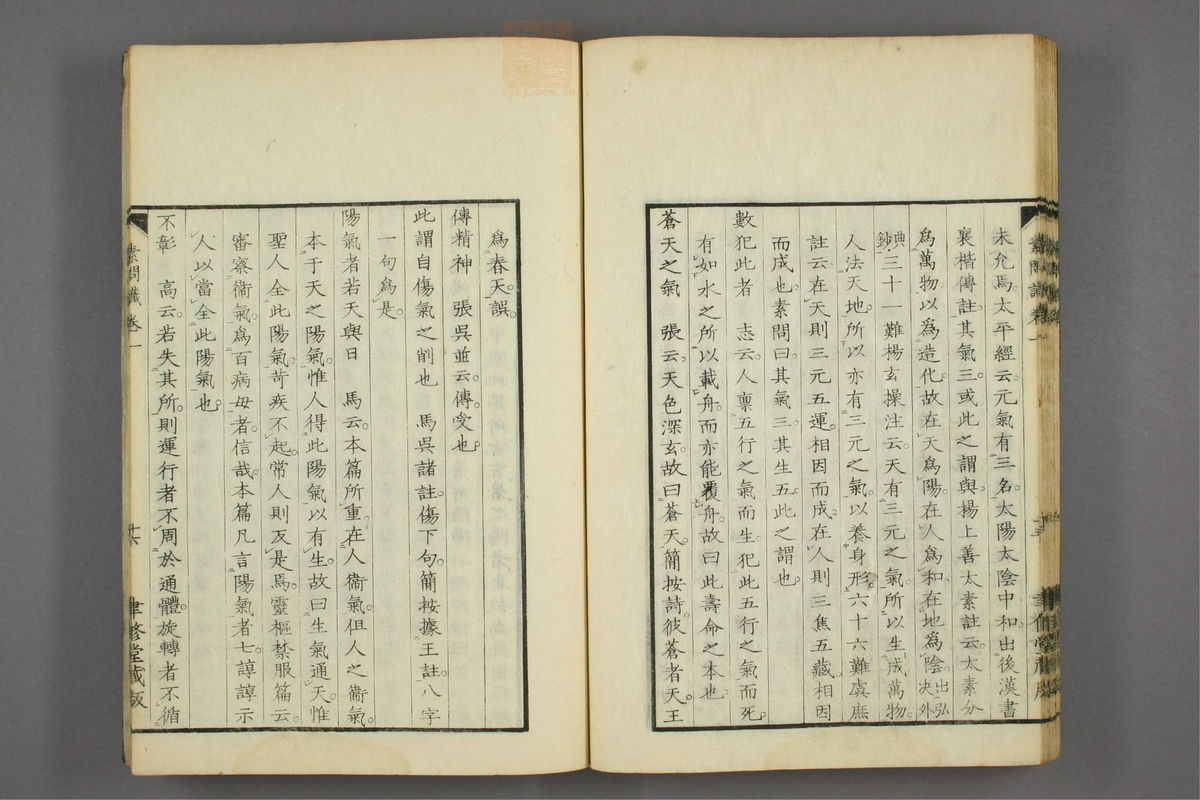 未允焉太平經云元氣有三名太陽太陰中和出後漢書
襄楷傳註其氣三或此之謂與楊上善太素註云太素分
爲萬物以爲造化故在天爲陽在人爲和在地爲陰出弘決外
典鈔三十一難楊玄操注云天有三元之氣所以生成萬物
人法天地所以亦有三元之氣以養身形六十六難虞庶
註云在天則三元五運相因而成在人則三焦五藏相因
而成也素問曰其氣三其生五此之謂也
數犯此者 志云人禀五行之氣而生犯此五行之氣而死
有如水之所以載舟而亦能覆舟故曰此壽命之本也
蒼天之氣 張云天色深玄故曰蒼天簡按詩彼蒼者天王
爲春天誤
傳精神 張吳並云傳受也
此謂自傷氣之削也 馬吳諸註傷下句簡按據王註八字
一句爲是
陽氣者若天與日 馬云本篇所重在人衞氣但人之衞氣
本于天之陽氣惟人得此陽氣以有生故曰生氣通天惟
聖人全此陽氣苛疾不起常人則反是焉靈樞禁服篇云
審察衞氣爲百病母者信哉本篇凡言陽氣者七諄諄示
人以當全此陽氣也
不彰 高云若失其所則運行者不周於通體旋轉者不循
素問識 卷一
廿六
聿修堂藏版
zysj.com.cn